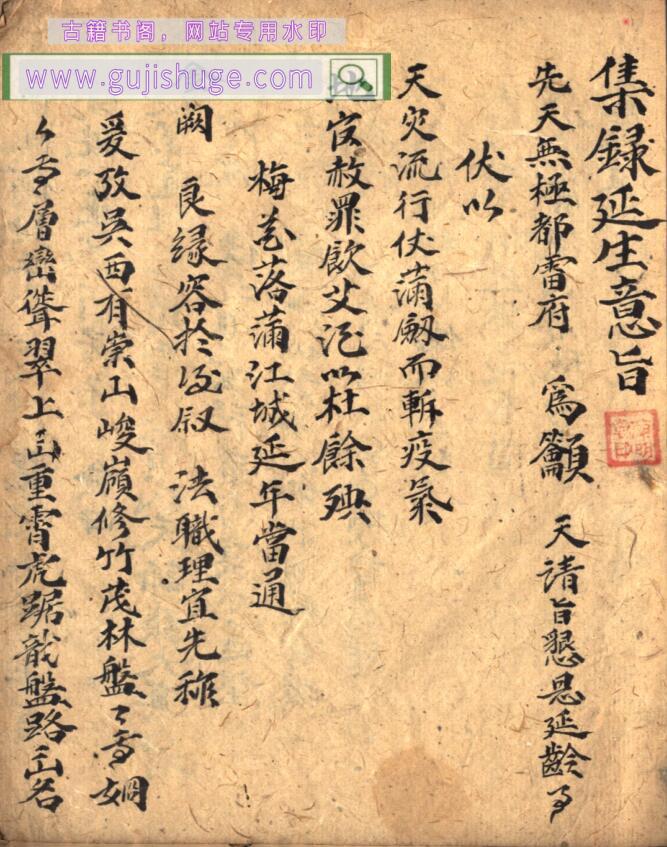 古籍书阁，网站专用水印
www.gujishuge.com
集録延生意旨
先天無極都雷府 為籲 天請旨懇恩延齡事
伏以
天灾流行仗蒲劔而斬疫氣
官赦罪飲艾酒以杜餘殃
梅花落蒲江城延年當通
闕 良緣容於後叙 法職理宜先稱
爰攷吳西有崇山峻嶺修竹茂林盤〻焉
〻焉層巒聳翠上出重霄虎踞龍盤路出名